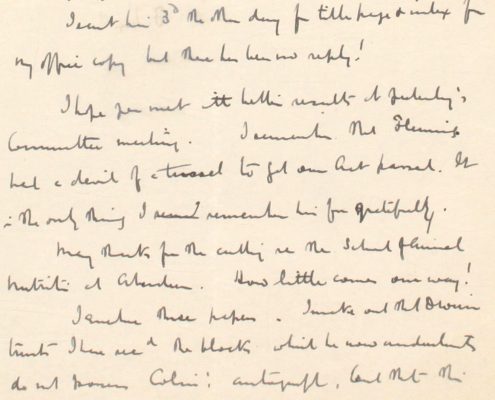 I sent him 3d the other day for title page & index for
my office copy but there has been no reply!
I hope you met with better results at yesterday's
Committee meeting. I remember that Fleming
had a devil of a tussel to get our Act passed. It
is the only thing I remember him for gratefully.
Many thanks for the cutting re the School of Animal
Nutrition at Aberdeen. How little comes our way!
I enclose these papers. I make out that
trusts I have recd the blocks which he now
do not possess Colin's autograph, but that this